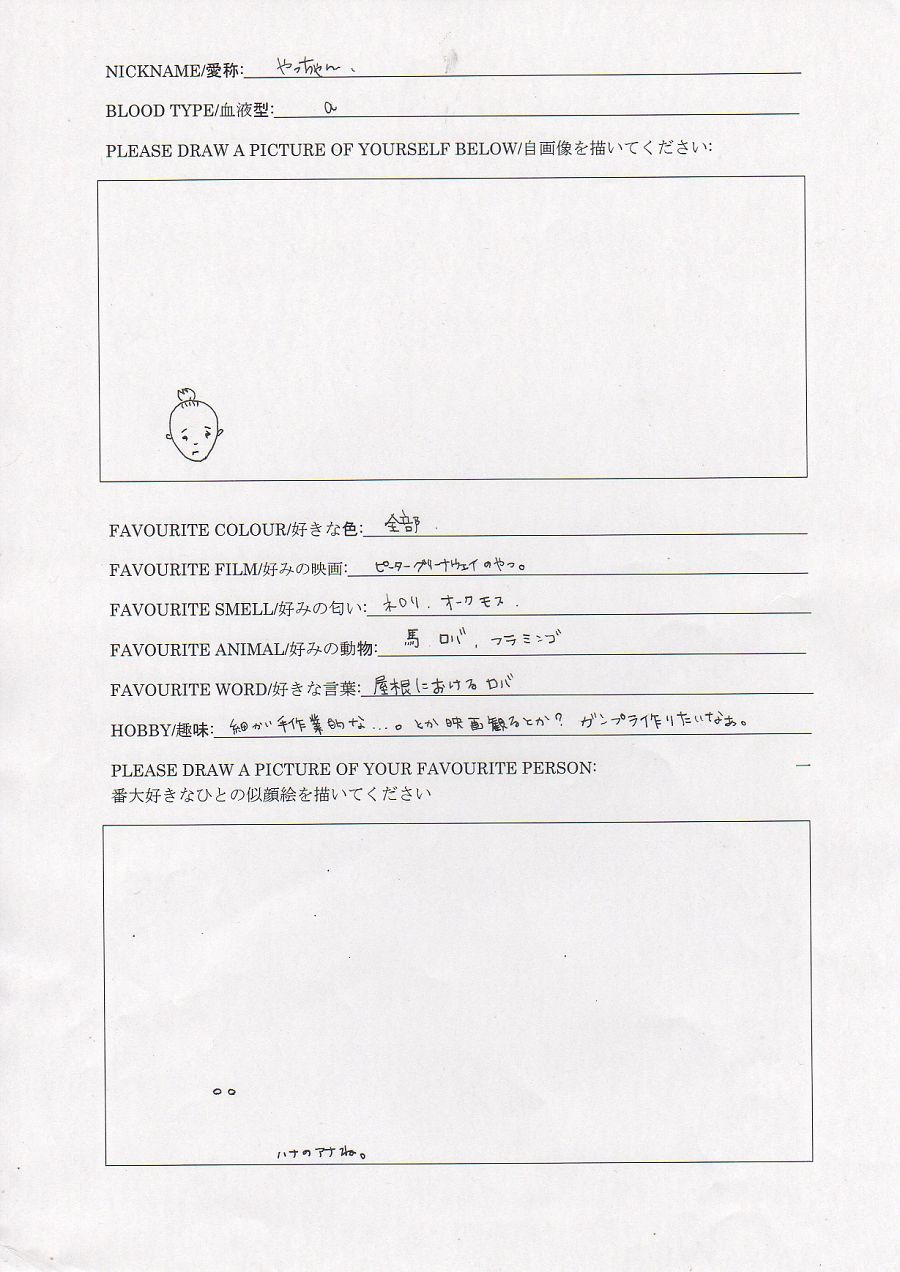 NICKNAME/愛称: やっちゃん、
BLOOD TYPE/血液型: a
PLEASE DRAW A PICTURE OF YOURSELF BELOW/自画像を描いてください:
FAVOURITE COLOUR/好きな色: 全部.
FAVOURITE FILM/好みの映画: ピーターグリーナウェイのやつ。
FAVOURITE SMELL/好みの匂い: ネロリ. オークモス.
FAVOURITE ANIMAL/好みの動物: 馬 ロバ, フラミンゴ
FAVOURITE WORD/好きな言葉: 屋根におけるロバ
HOBBY/趣味: 細かい手作業的な...。とか映画観るとか? ガンプラ作りたいなぁ。
PLEASE DRAW A PICTURE OF YOUR FAVOURITE PERSON: 一
番大好きなひとの似顔絵を描いてください
ハナのアナね。